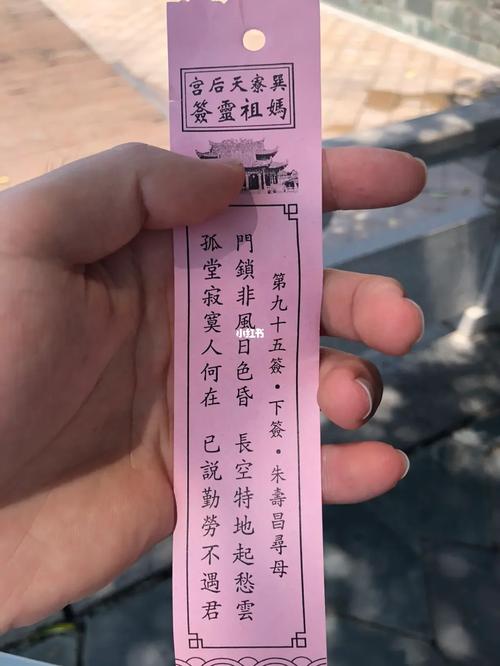 巽寮天后宫
媽祖靈簽
第九十五簽・下簽・朱壽昌尋母
門鎖非風日色昏 長空特地起愁雲
孤堂寂寞人何在 已説勤勞不遇君
小红书